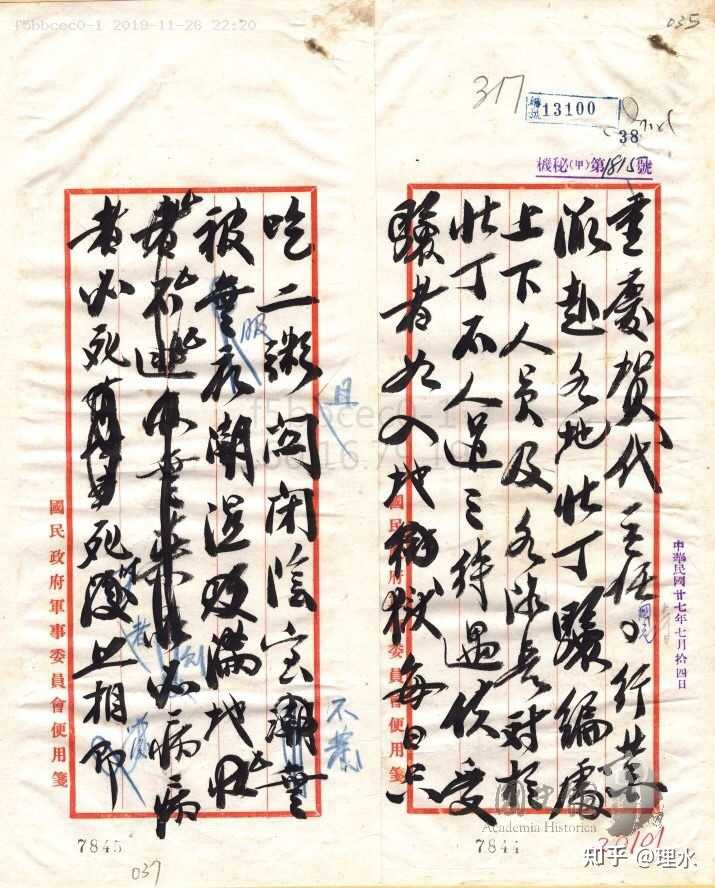 f5bbcec0-1 2019-11-26 22:20
035
317
13100
38
機秘(甲)第1815號
中華民國廿七年七月拾四日
重慶賀代主任國光行營
派赴各地壯丁驗編處
上下人員及各隊長對於
壯丁不人道之待遇使受
驗者如入地獄每日只
國民政府軍事委員會便用箋
7844
30101
吃二粥閉陰室潮無
被無衣潮溼滿地壯
不逃亦無必病病
者必死死後且相
且
服
不
國民政府軍事委員會便用箋
7845
037
國史館
Academia Historica
知乎 @理水